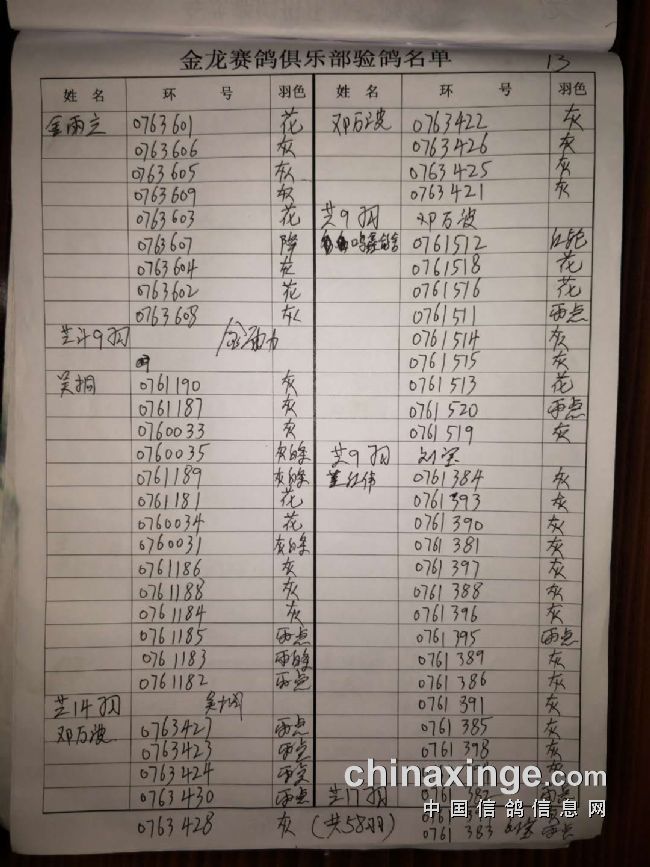 金龙赛鸽俱乐部验鸽名单 13
姓名 环号 羽色
金雨立 0763601 花
0763606 灰
0763605 灰
0763609 灰
0763603 花
0763607 降
0763604 灰
0763602 花
0763608 灰
共计9羽
吴桐 0761190 灰
0761187 灰
0760033 灰
0760035 灰白条
0761189 灰白条
0761181 花
0760034 花
0760031 灰白条
0761186 灰
0761188 灰
0761184 灰
0761185 雨点
0761183 雨白条
0761182 雨点
共14羽 吴桐
邓万波 0763427 雨点
0763423 雨点
0763424 雨点
0763430 雨点
0763428 灰
姓名 环号 羽色
邓万波 0763422 灰
0763426 灰
0763425 灰
0763421 灰
共9羽 邓万波
0761512 红轮
0761518 花
0761516 花
0761511 雨点
0761514 灰
0761515 灰
0761513 花
0761520 雨点
0761519 灰
共9羽
董红伟 0761384 灰
0761393 灰
0761390 灰
0761381 灰
0761397 灰
0761388 灰
0761396 灰
0761395 雨点
0761389 灰
0761386 灰
0761391 灰
0761385 灰
0761398 灰
共17羽 雨点
(共58羽) 0761383 雨点
chinaxinge.com
中国信鸽信息网